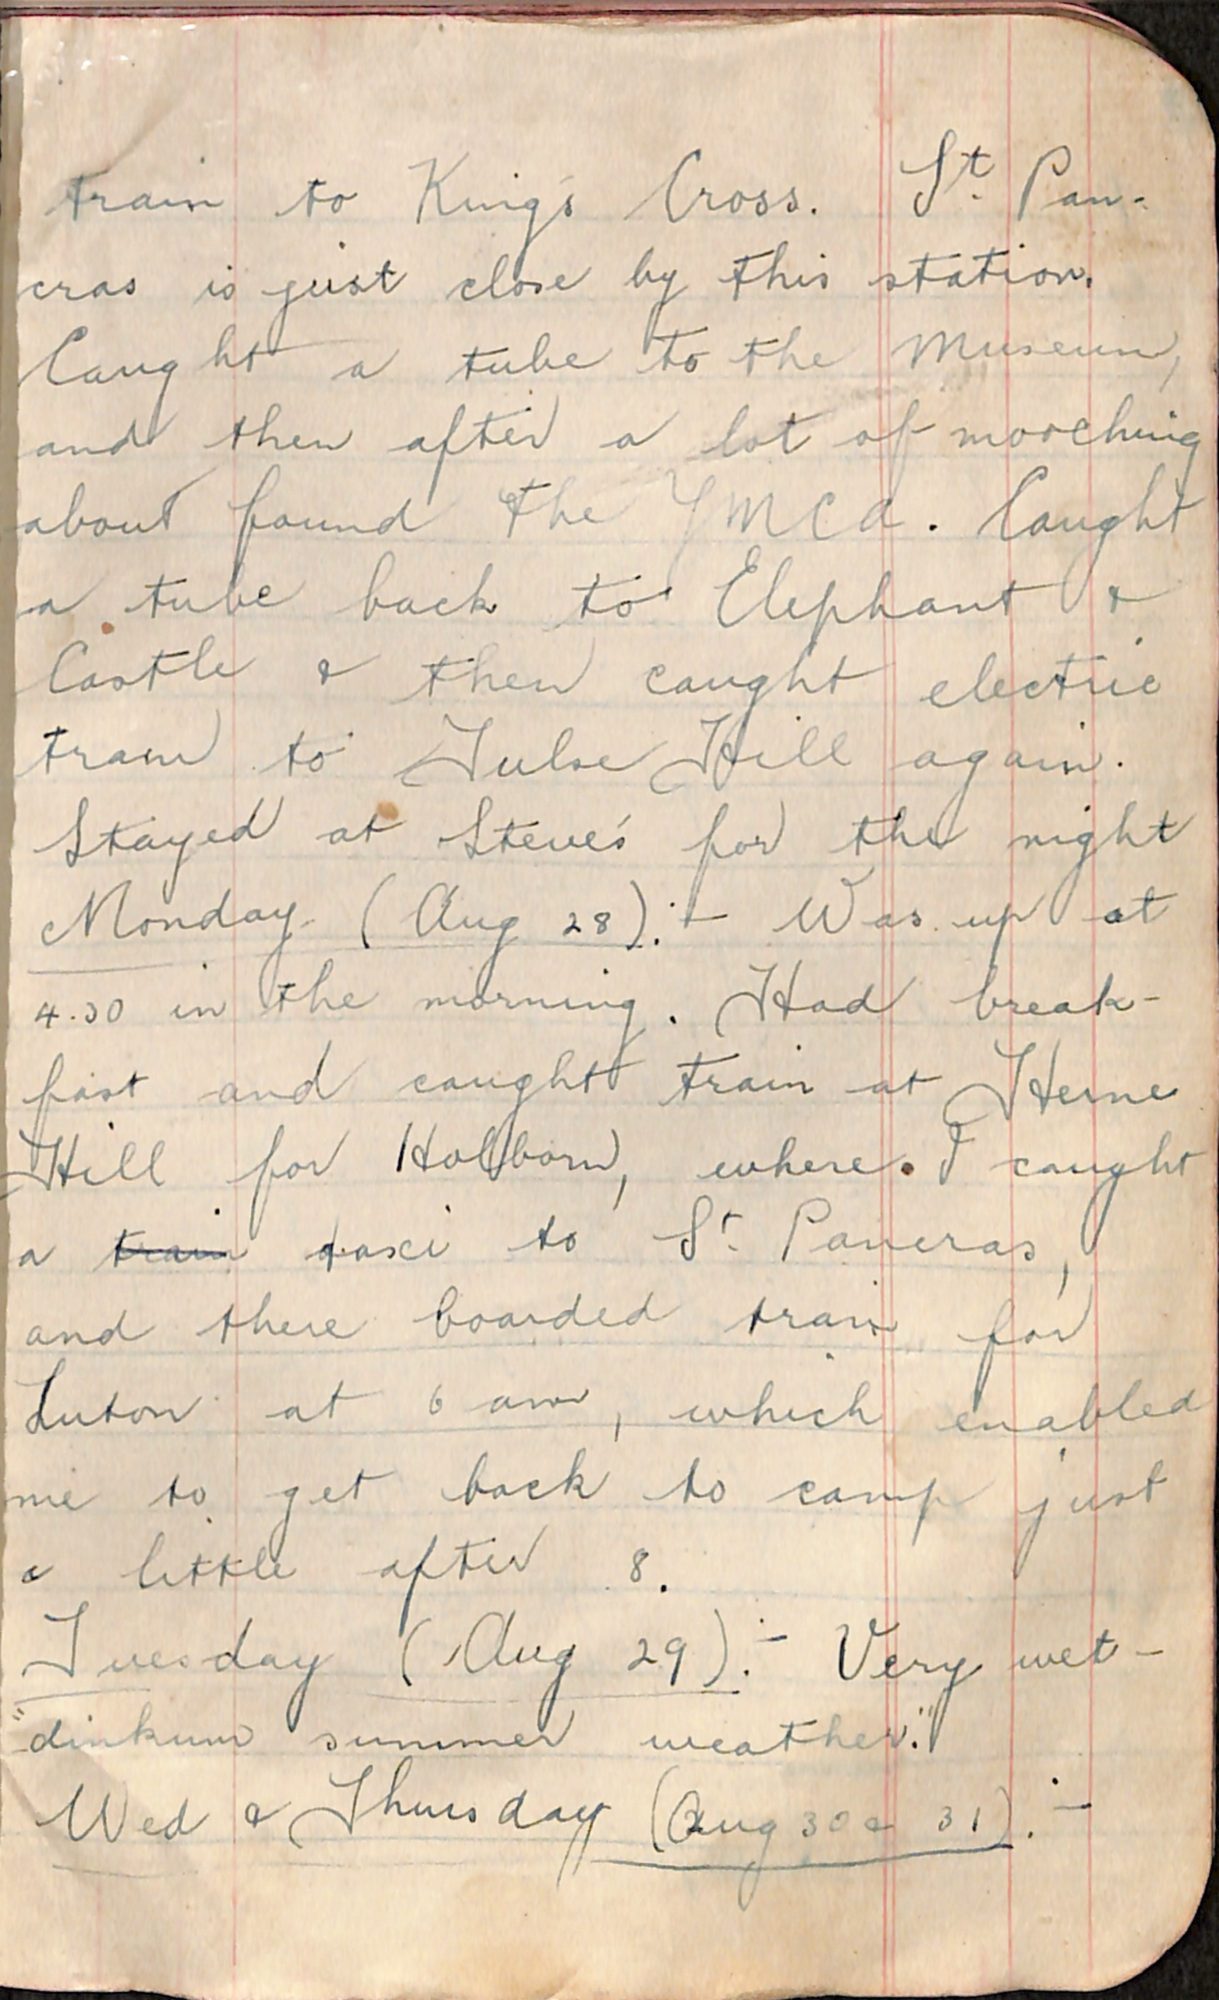 train to King's Cross. St. Pan-
cras is just close by this station.
Caught a tube to the Museum,
and then after a lot of mooching
about found the YMCA. Caught
a tube back to Elephant &
Castle & then caught electric
train to Tulse Hill again.
Stayed at Steve's for the night
Monday (Aug 28):- Was up at
4.30 in the morning. Had break-
fast and caught train at Herne
Hill for Holborn, where I caught
a train taxi to St. Pancras,
and there boarded train for
Luton at 6 am, which enabled
me to get back to camp just
a little after 8.
Tuesday (Aug 29):- Very wet-
"dinkum summer weather."
Wed & Thursday (Aug 30 & 31):-